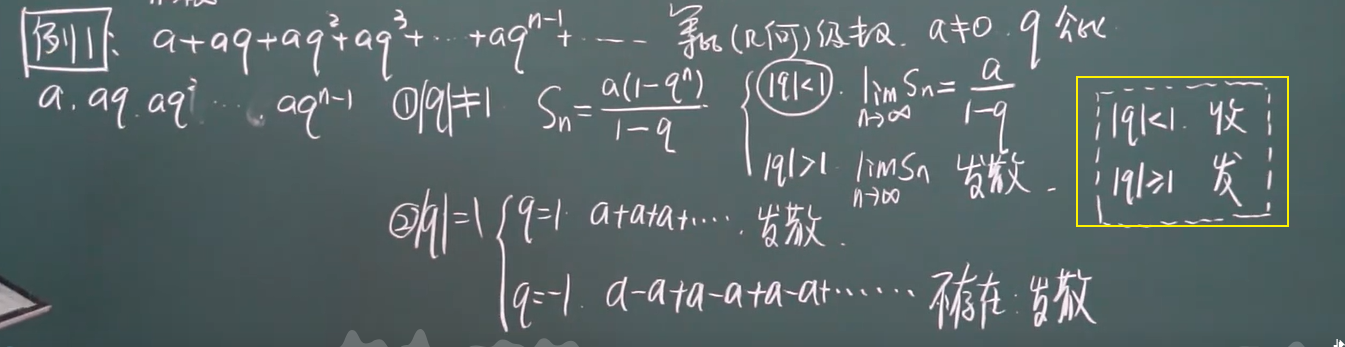 例1: a+aq+aq²+aq³+⋯+aqⁿ⁻¹+⋯⋯ 等比(几何)级数. a≠0. q 公比
a. aq. aq² ⋯. aqⁿ⁻¹ ①|q|≠1 Sn=a(1-qⁿ)/(1-q) { |q|<1. lim n→∞ Sn=a/(1-q)
|q|>1. lim n→∞ Sn 发散.
|q|<1. 收
|q|≥1 发
②|q|=1 { q=1. a+a+a+⋯. 发散.
q=-1. a-a+a-a+a-a+⋯⋯ 不存在: 发散